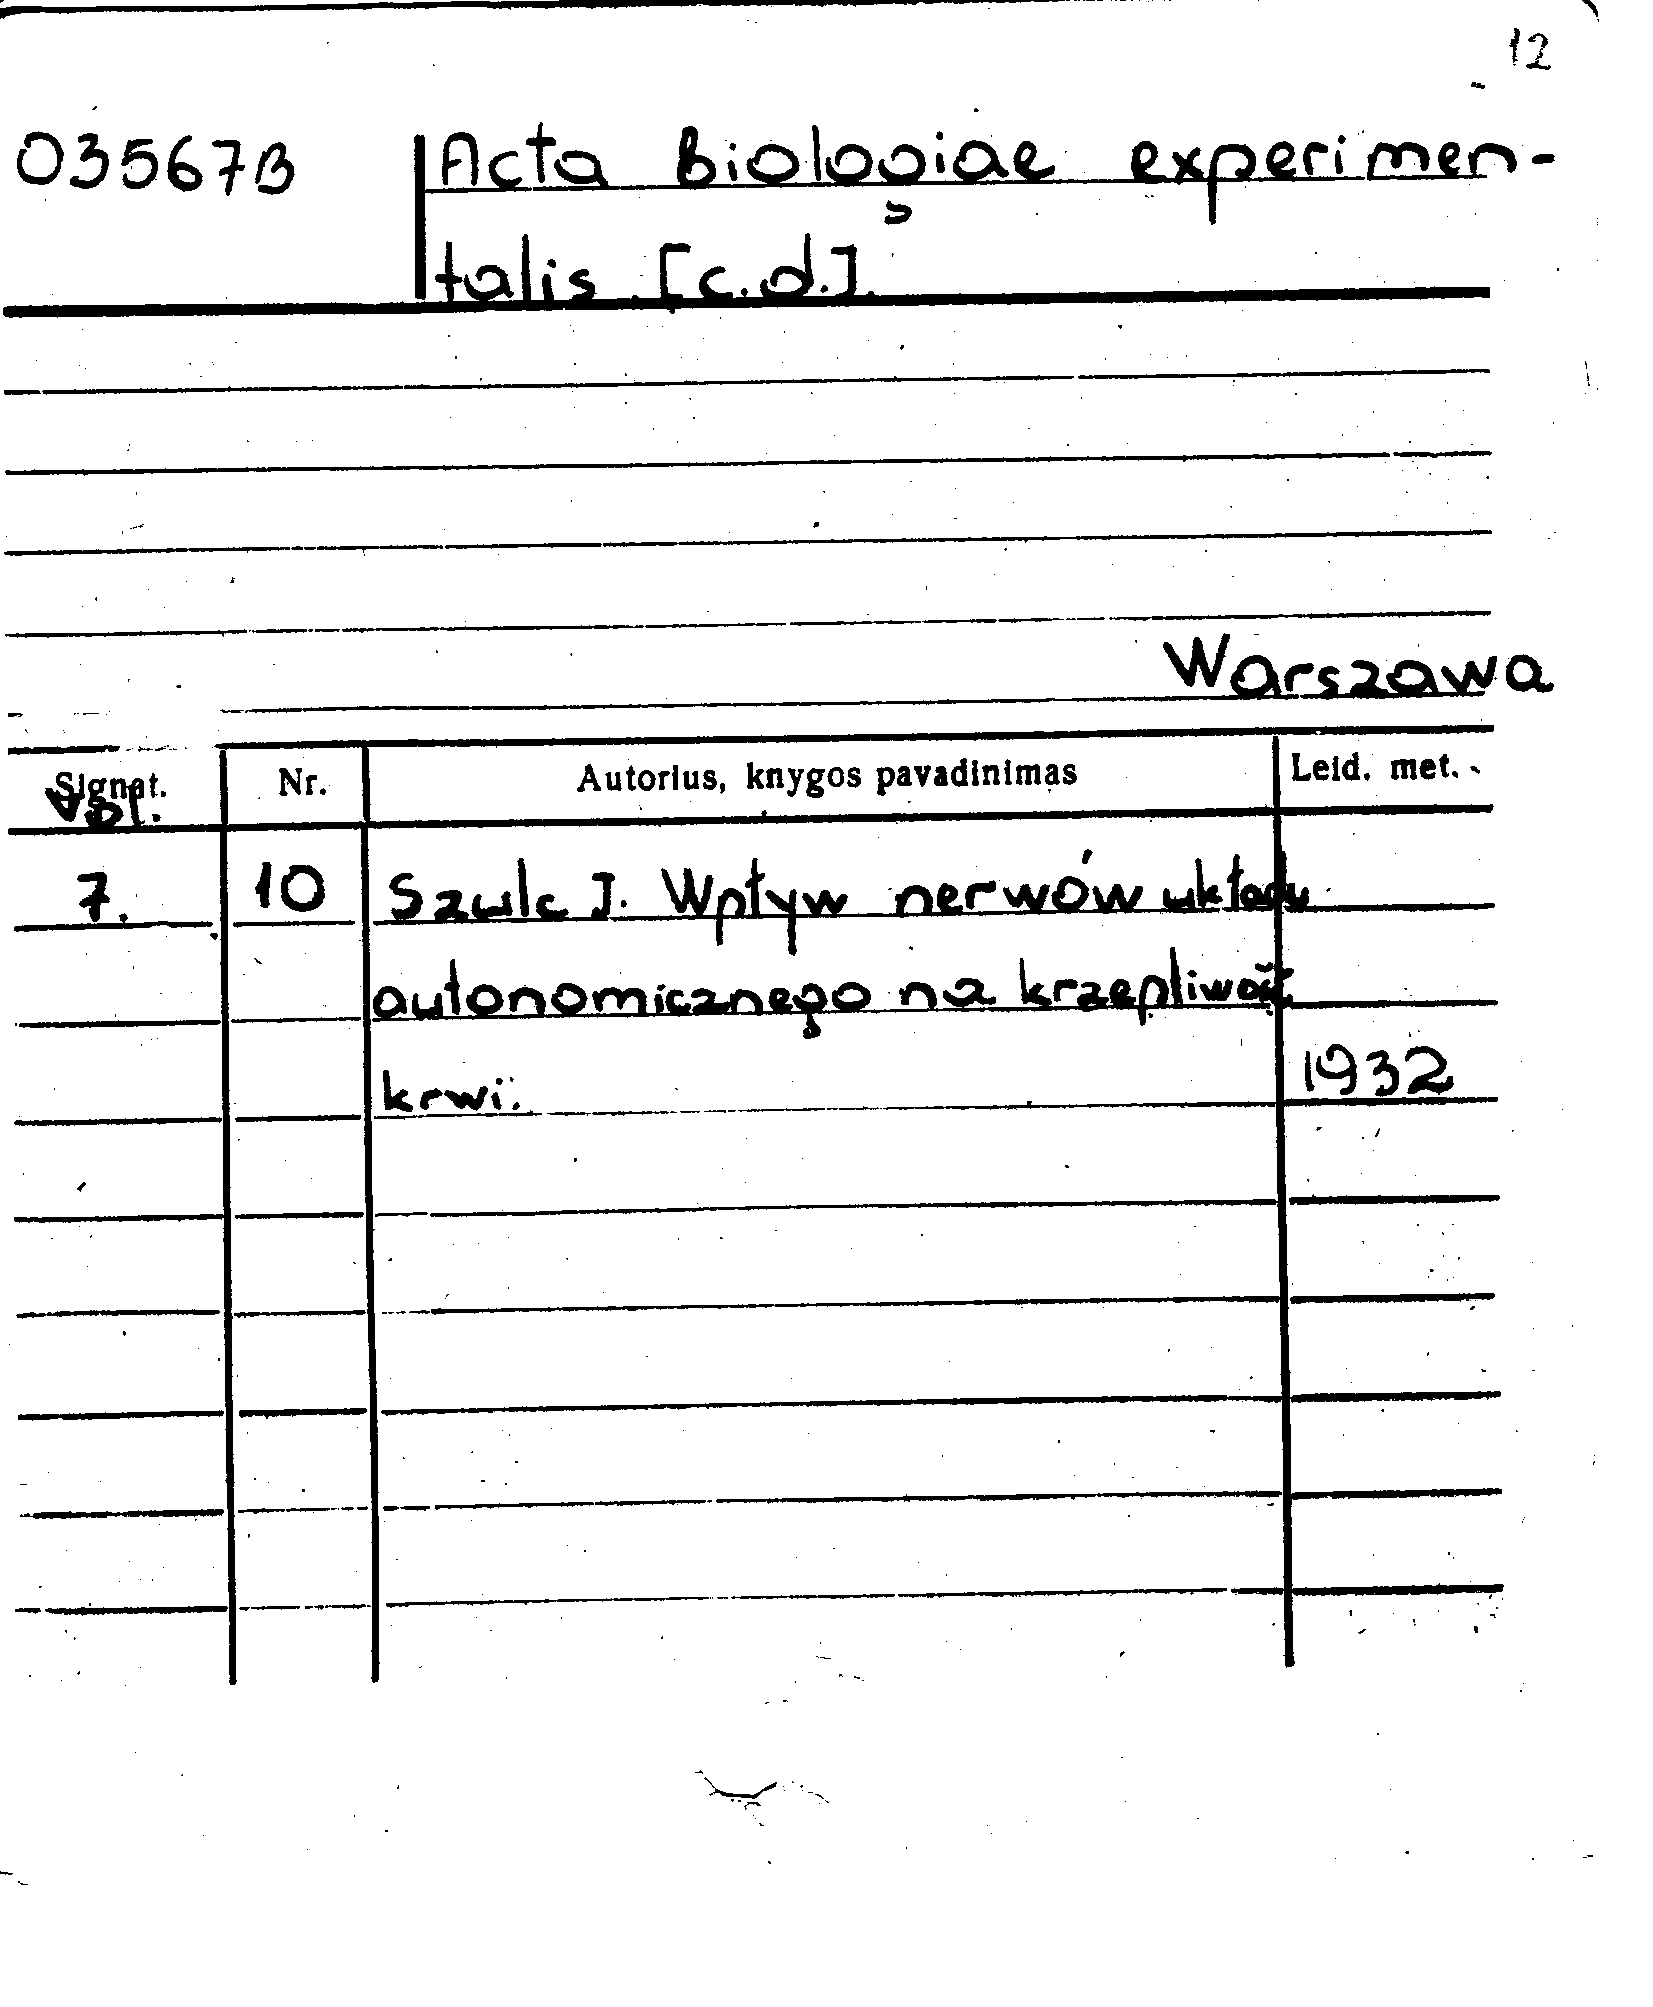 12
03567B Acta Biologiae experimen-
talis [c.d.].
Warszawa
Signat. Nr. Autorius, knygos pavadinimas Leid. met.
Vol.
7. 10 Szulc J. Wpływ nerwów układu
autonomicznego na krzepliwość
krwi. 1932